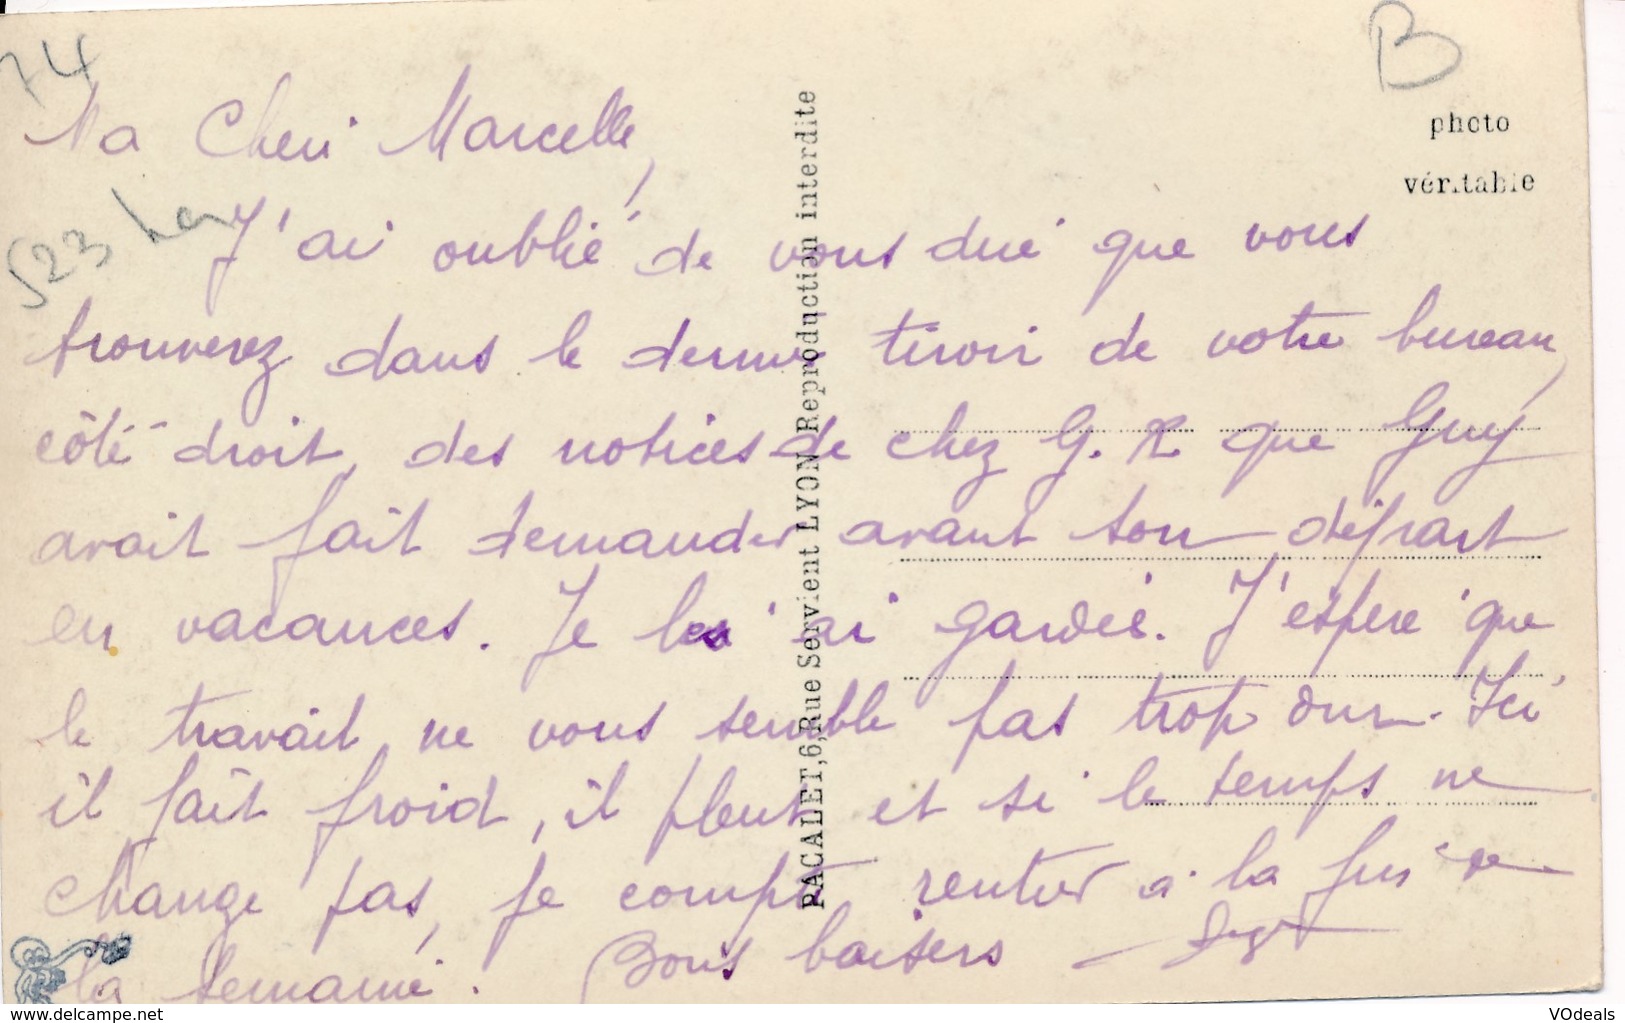 74
B
photo
véritable
523 
Ma Cheri Marcelle,
J'ai oublié de vous dire que vous
trouverez dans le dernier tiroir de votre bureau,
côté droit, des notices de chez G. R que Guy
avait fait demander avant son départ
en vacances. Je les ai gardées. J'espère que
le travail ne vous semble pas trop dur. Ici
il fait froid, il pleut et si le temps ne
change pas, je compte rentrer à la fin de
la semaine. Bons baisers
PACALET,6,Rue Servient LYON Reproduction interdite
www.delcampe.net
VOdeals